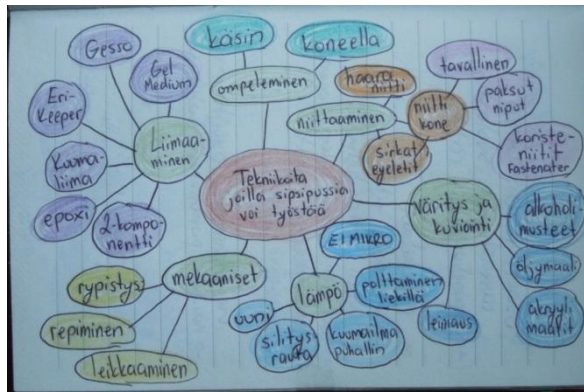 Tekniikoita
joilla sipsipussia
voi työstää
ompeleminen
käsin
koneella
niittaaminen
haara
niitti
niitti
kone
tavallinen
paksut
niput
koriste-
niitit
Fastenater
sirkat
eyeletit
Väritys ja
kuviointi
alkoholi-
musteet
öljymaali
akryyli
maalit
leimaus
lämpö
EI MIKRO
polttaminen
liekillä
kuumailma
puhallin
silitys
rauta
uuni
mekaaniset
rypistys
repiminen
leikkaaminen
Liimaa-
minen
Gesso
Gel
Medium
Eri-
Keeper
Kuuma-
liima
epoxi
2-kompo-
nentti